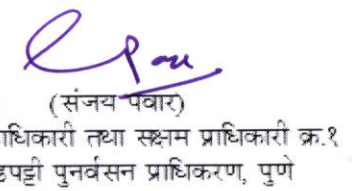 (संजय पवार)
ाधिकारी तथा सक्षम प्राधिकारी क्र.१
डपट्टी पुनर्वसन प्राधिकरण, पुणे